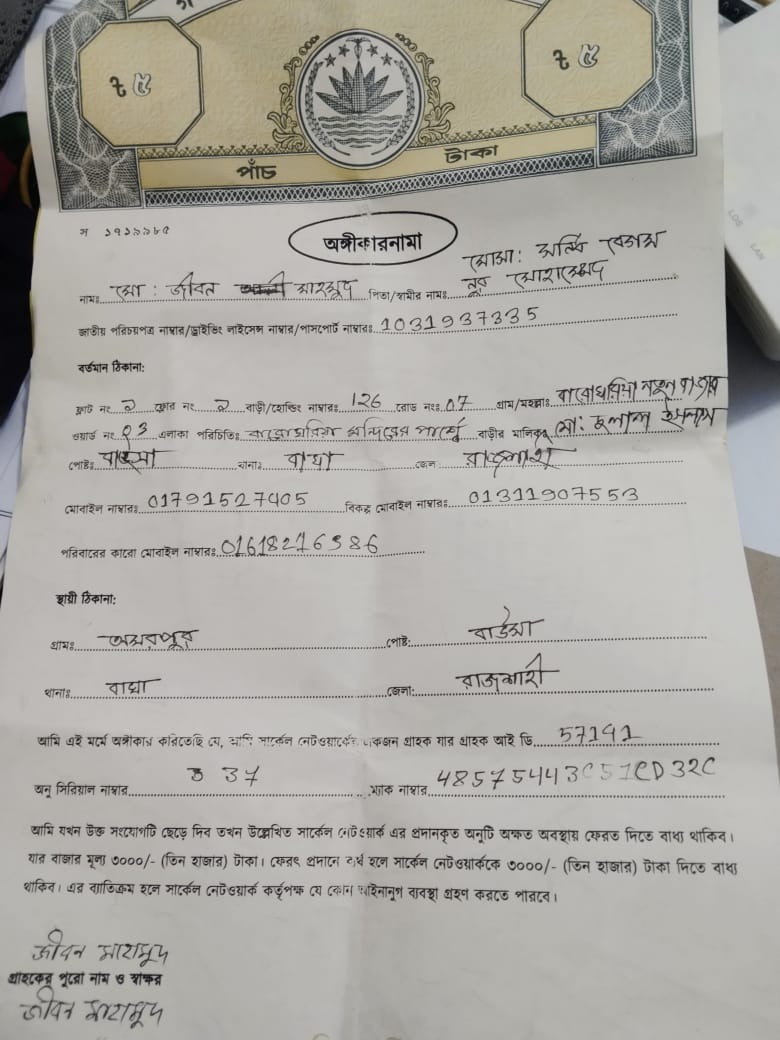 ৳ ৫
৳ ৫
পাঁচ টাকা
স ১৭১৯৯৮৫
অঙ্গীকারনামা
নামঃ মো: জীবন মাহমুদ পিতা/স্বামীর নামঃ নুর মোহাম্মেদ
জাতীয় পরিচয়পত্র নাম্বার/ড্রাইভিং লাইসেন্স নাম্বার/পাসপোর্ট নাম্বারঃ 1031937335
বর্তমান ঠিকানা:
ফ্লাট নং ২ ফ্লোর নং ২ বাড়ী/হোল্ডিং নাম্বারঃ 126 রোড নংঃ 07 গ্রাম/মহল্লাঃ বারোঘরিয়া নতুন বাজার
ওয়ার্ড নং 03 এলাকা পরিচিতিঃ বারোঘরিয়া মন্দিরের পার্শ্বে বাড়ীর মালিকঃ মো: দুলাল ইসলাম
পোষ্টঃ বাউসা থানাঃ বাঘা জেলা রাজশাহী
মোবাইল নাম্বারঃ 01791527405 বিকল্প মোবাইল নাম্বারঃ 01311907553
পরিবারের কারো মোবাইল নাম্বারঃ 01618216386
স্থায়ী ঠিকানা:
গ্রামঃ অমরপুর পোষ্ট: বাউসা
থানাঃ বাঘা জেলা: রাজশাহী
আমি এই মর্মে অঙ্গীকার করিতেছি যে, আমি সার্কেল নেটওয়ার্কের একজন গ্রাহক যার গ্রাহক আই ডি 57141
অনু সিরিয়াল নাম্বার 37 ম্যাক নাম্বার 48575443C51CD32C
আমি যখন উক্ত সংযোগটি ছেড়ে দিব তখন উল্লেখিত সার্কেল নেটওয়ার্ক এর প্রদানকৃত অনুটি অক্ষত অবস্থায় ফেরত দিতে বাধ্য থাকিব।
যার বাজার মূল্য ৩০০০/- (তিন হাজার) টাকা। ফেরৎ প্রদানে ব্যর্থ হলে সার্কেল নেটওয়ার্ককে ৩০০০/- (তিন হাজার) টাকা দিতে বাধ্য
থাকিব। এর ব্যাতিক্রম হলে সার্কেল নেটওয়ার্ক কর্তৃপক্ষ যে কোন আইনানুগ ব্যবস্থা গ্রহণ করতে পারবে।
জীবন মাহামুদ
গ্রাহকের পুরো নাম ও স্বাক্ষর
জীবন মাহামুদ
LOS
LAN